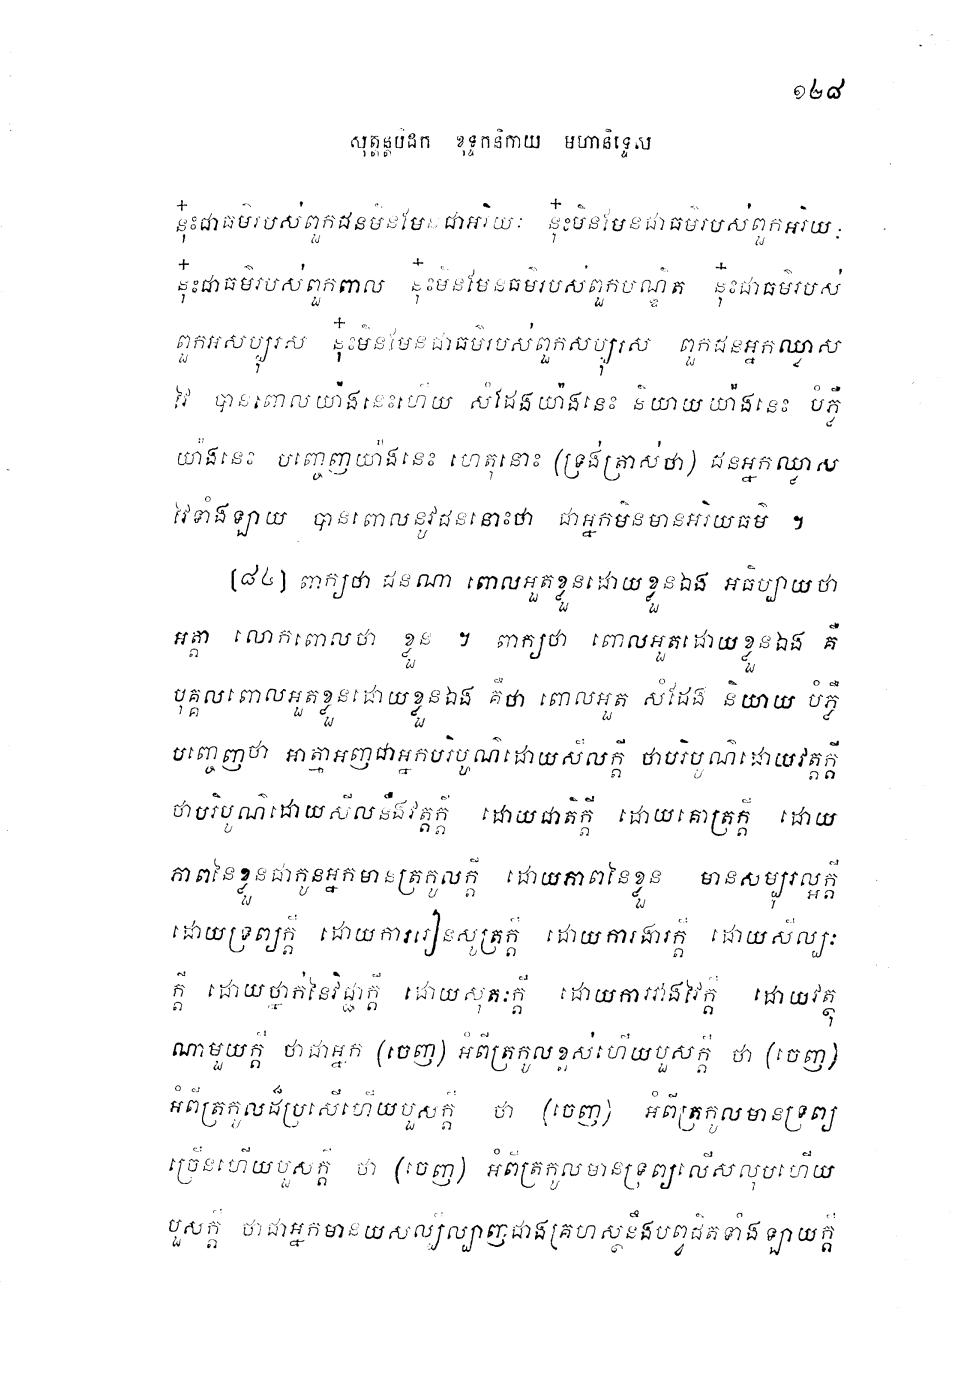 ១២៨
សុត្តន្តបិដក ខុទ្ទកនិកាយ មហានិទ្ទេស
នុ៎ះជាធម៌របស់ពួកជនមិនមែនជាអរិយៈ នុ៎ះមិនមែនជាធម៌របស់ពួកអរិយៈ
នុ៎ះជាធម៌របស់ពួកពាល នុ៎ះមិនមែនធម៌របស់ពួកបណ្ឌិត នុ៎ះជាធម៌របស់
ពួកអសប្បុរស នុ៎ះមិនមែនជាធម៌របស់ពួកសប្បុរស ពួកជនអ្នកឈ្លាស
វៃ បានពោលយ៉ាងនេះហើយ សំដែងយ៉ាងនេះ និយាយយ៉ាងនេះ បំភ្លឺ
យ៉ាងនេះ បញ្ចេញយ៉ាងនេះ ហេតុនោះ (ទ្រង់ត្រាស់ថា) ជនអ្នកឈ្លាស
វៃទាំងឡាយ បានពោលនូវជននោះថា ជាអ្នកមិនមានអរិយធម៌ ។
[៨៤] ពាក្យថា ជនណា ពោលអួតខ្លួនដោយខ្លួនឯង អធិប្បាយថា
អត្តា លោកពោលថា ខ្លួន ។ ពាក្យថា ពោលអួតដោយខ្លួនឯង គឺ
បុគ្គលពោលអួតខ្លួនដោយខ្លួនឯង គឺថា ពោលអួត សំដែង និយាយ បំភ្លឺ
បញ្ចេញថា អាត្មាអញជាអ្នកបរិបូណ៌ដោយសីលក្តី ថាបរិបូណ៌ដោយវត្តក្តី
ថាបរិបូណ៌ដោយសីលនឹងវត្តក្តី ដោយជាតិក្តី ដោយគោត្រក្តី ដោយ
ភាពនៃខ្លួនជាកូនអ្នកមានត្រកូលក្តី ដោយភាពនៃខ្លួន មានសម្បុរល្អក្តី
ដោយទ្រព្យក្តី ដោយការរៀនសូត្រក្តី ដោយការងារក្តី ដោយសិល្បៈ
ក្តី ដោយថ្នាក់នៃវិជ្ជាក្តី ដោយសុតៈក្តី ដោយការវាងវៃក្តី ដោយវត្ថុ
ណាមួយក្តី ថាជាអ្នក (ចេញ) អំពីត្រកូលខ្ពស់ហើយបួសក្តី ថា (ចេញ)
អំពីត្រកូលដ៏ប្រសើហើយបួសក្តី ថា (ចេញ) អំពីត្រកូលមានទ្រព្យ
ច្រើនហើយបួសក្តី ថា (ចេញ) អំពីត្រកូលមានទ្រព្យលើសលុបហើយ
បួសក្តី ថាជាអ្នកមានយសល្បីល្បាញជាងគ្រហស្ថនឹងបព្វជិតទាំងឡាយក្តី